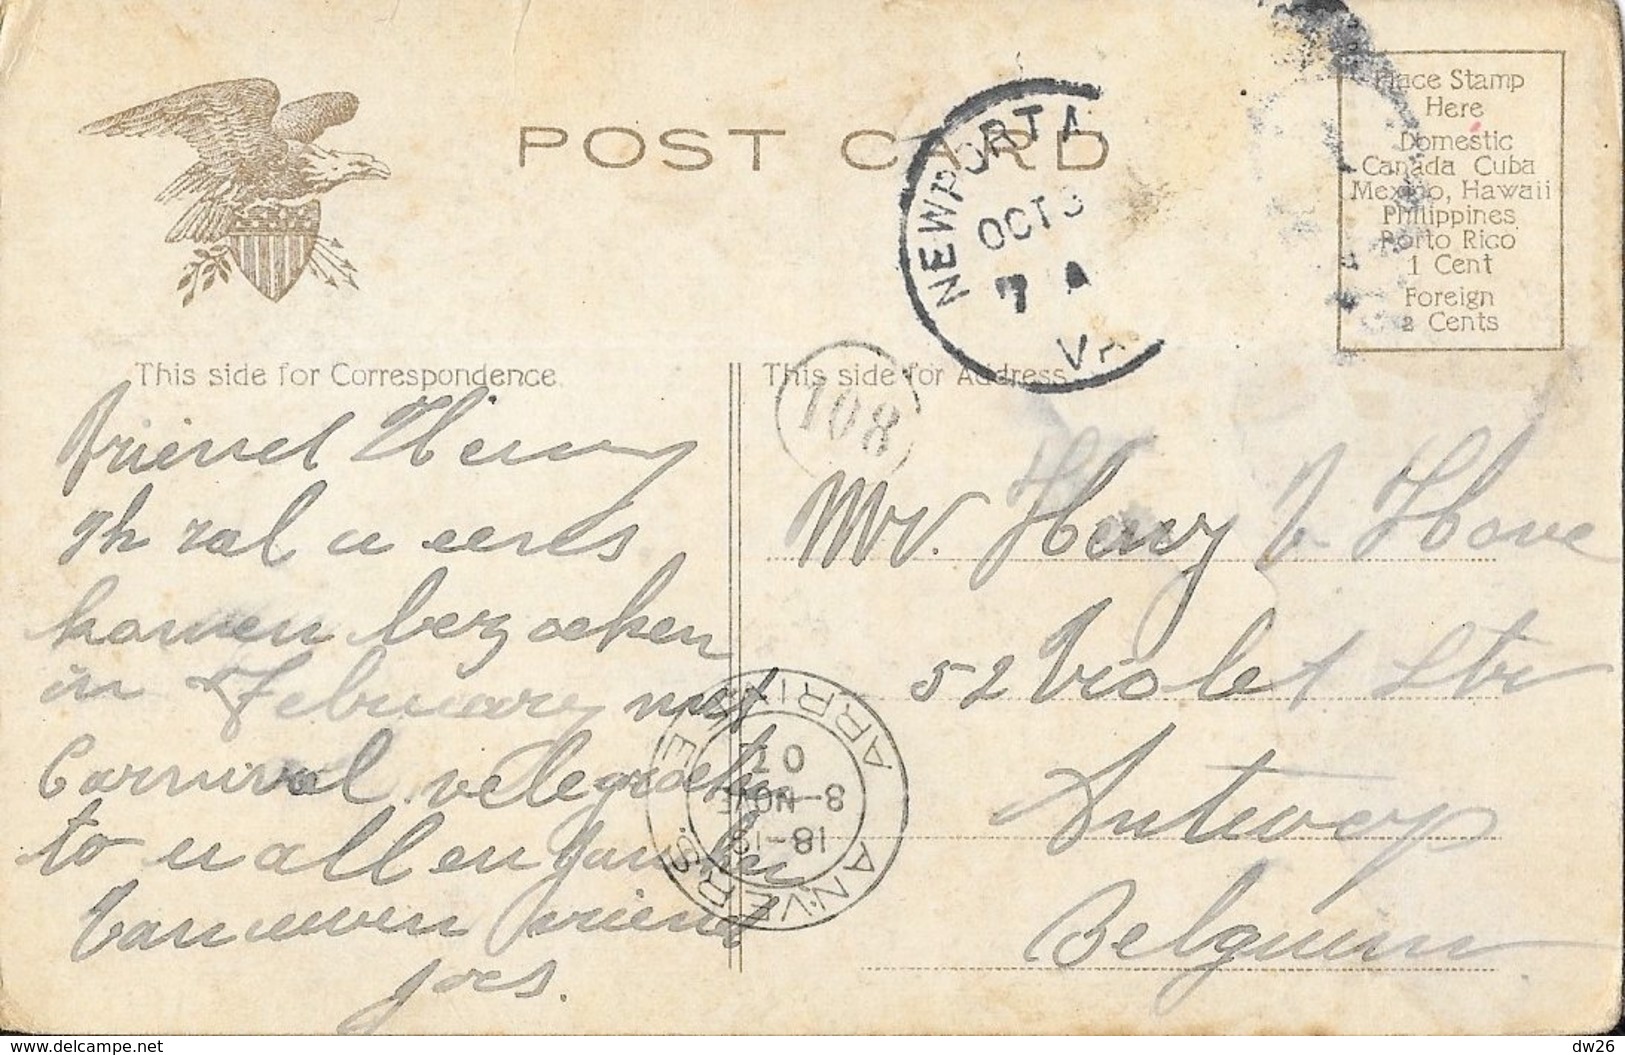 POST CARD
NEWPORT
OCT 3
7 A
VA
Place Stamp
Here
Domestic
Canada Cuba
Mexico, Hawaii
Philippines
Porto Rico
1 Cent
Foreign
2 Cents
This side for Correspondence
This side for Address
108
Vriend Henry
Ik zal u eens
komen bezoeken
in February met
Carnival velegroeten
to u allen
van uwen vriend
Joes.
Mr. Henry V Hove
52 Violet Str
Antwerp
Belgium
ANVERS
ARRIVEE
18-19
8-NOVE
07
www.delcampe.net
dw26